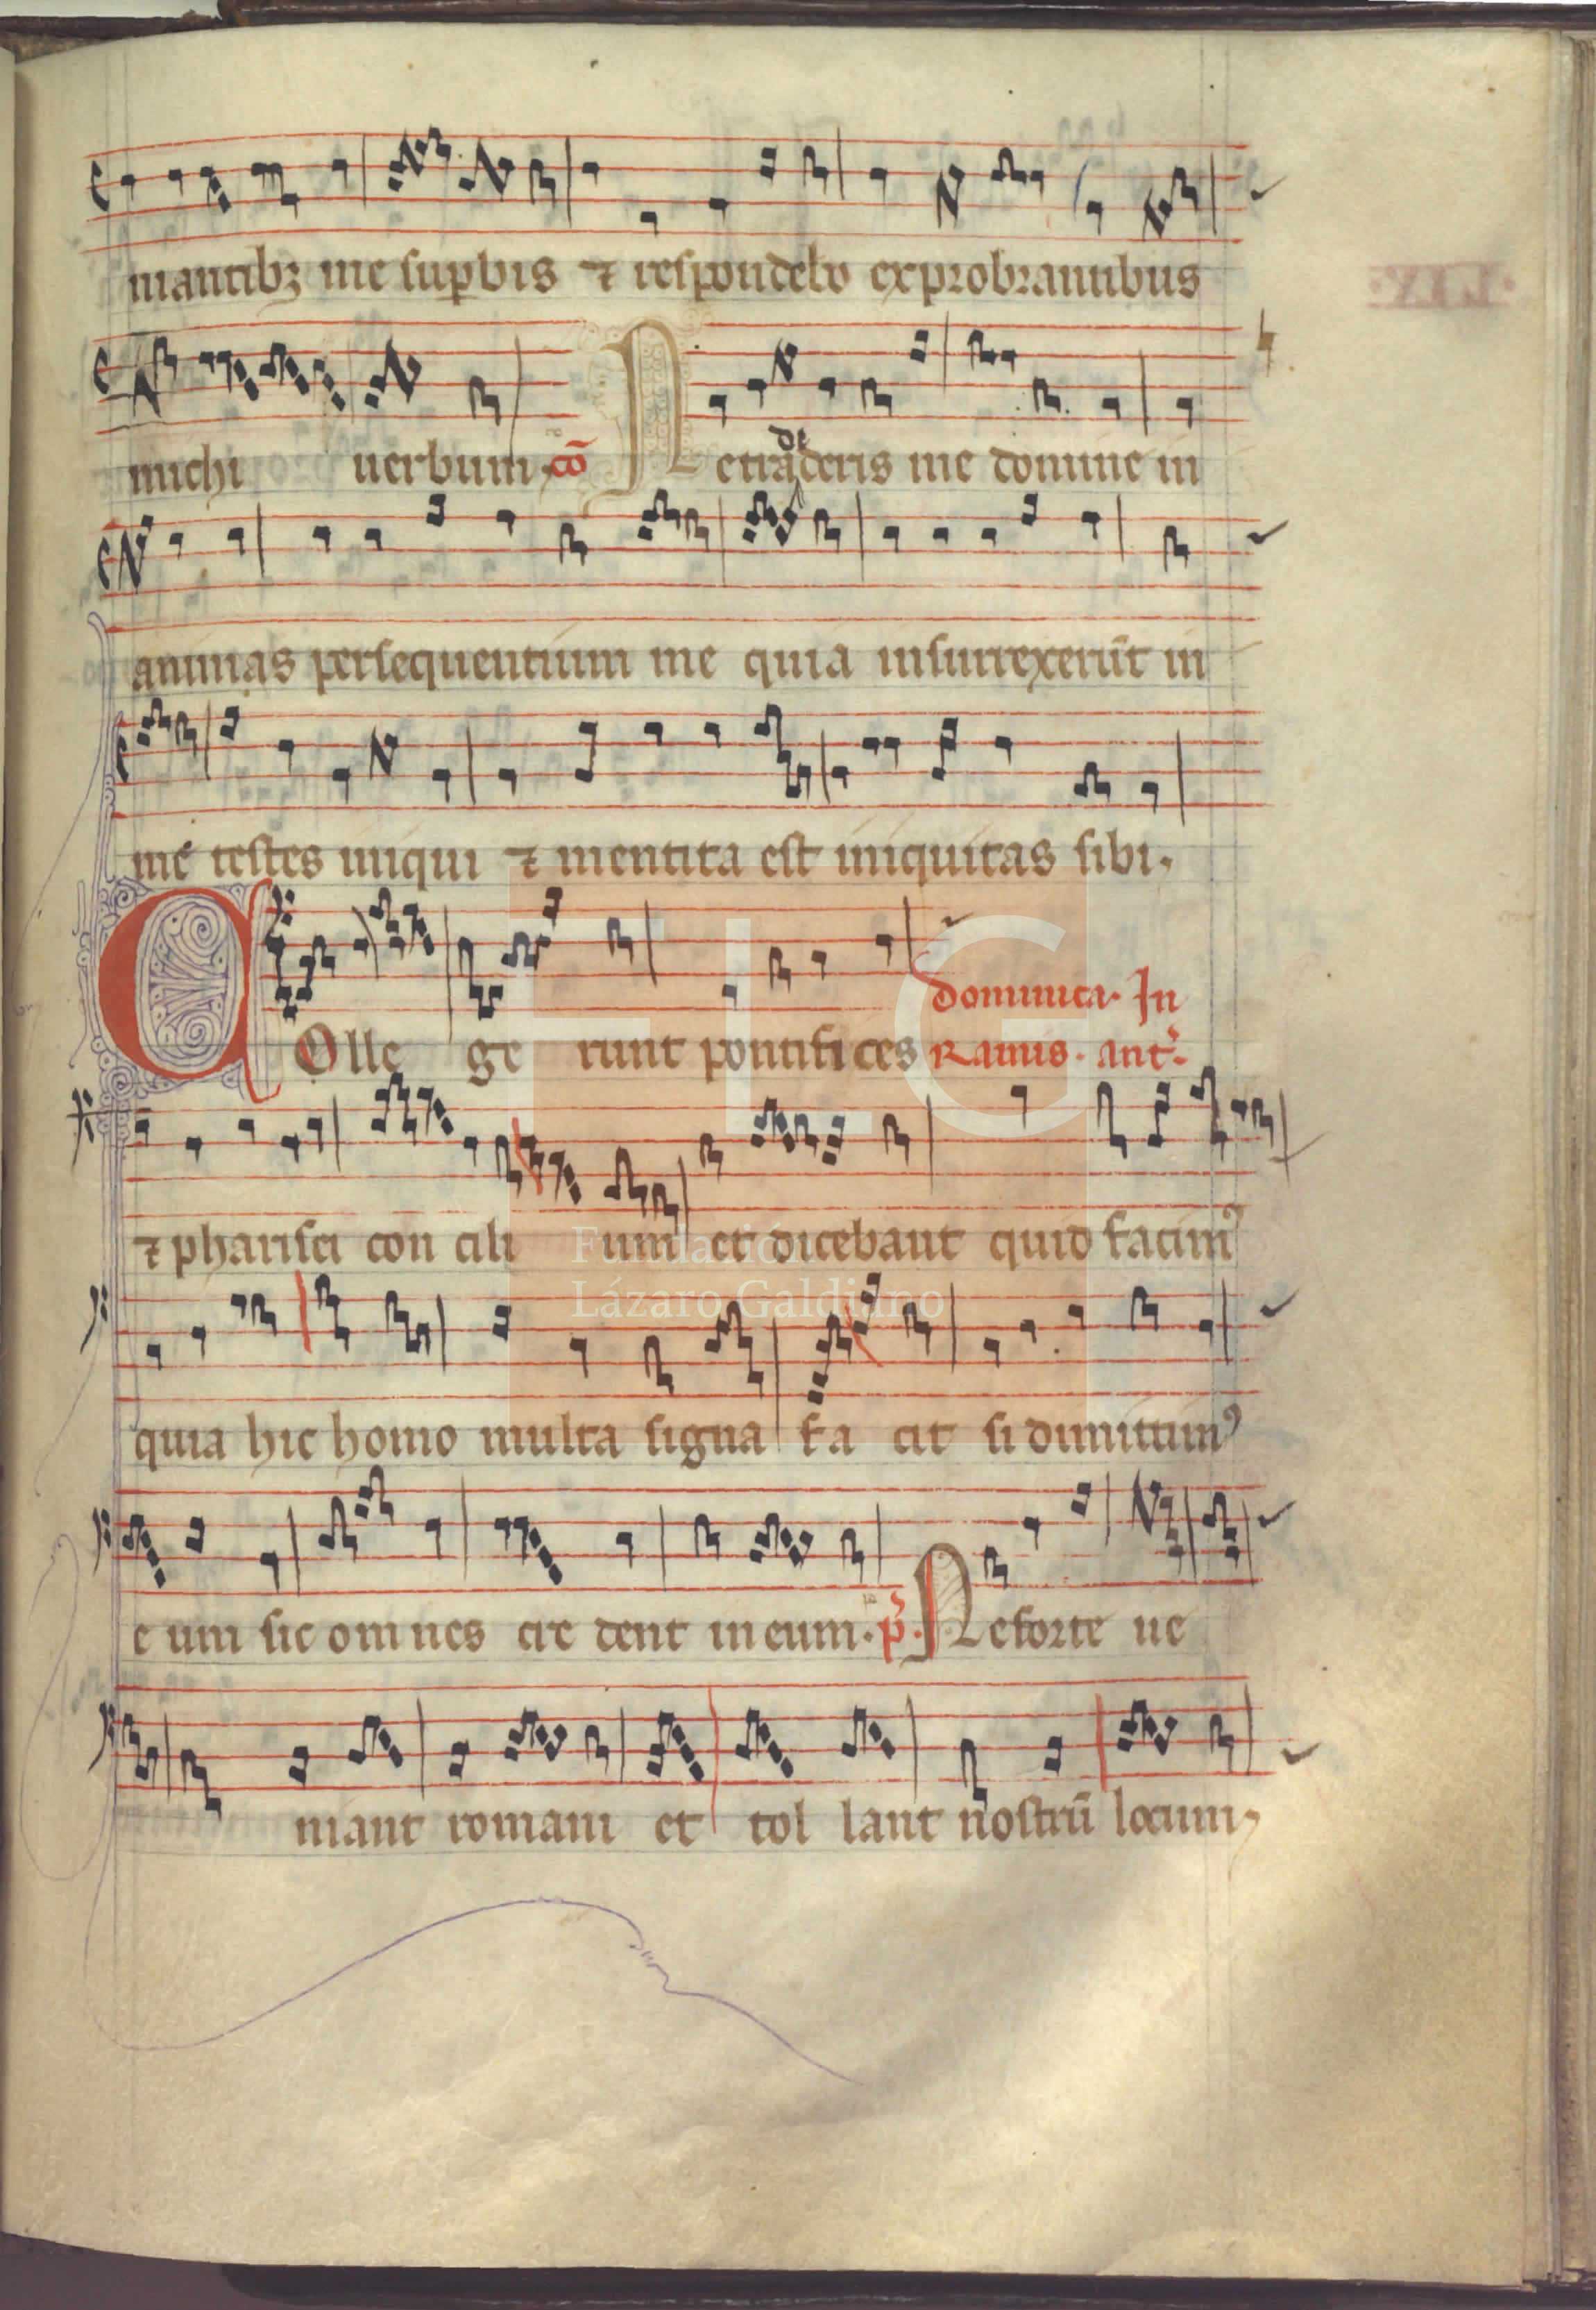 mantibꝫ me suꝑbis ⁊ respondebo exprobrantibus
michi uerbum. cõ Ne tra de deris me domine in
animas persequentium me quia insurrexerũt in
me testes iniqui ⁊ mentita est iniquitas sibi.
Colle ge runt pontifices Dominica. In
Ramis. ant.
⁊ pharisei con cili um et dicebant quid facimꝰ
quia hic homo multa signa fa cit si dimittimꝰ
e um sic om nes cre dent in eum. p̃. Ne forte ue
niant romani et tol lant nostrũ locum,
FLG
Fundación
Lázaro Galdiano